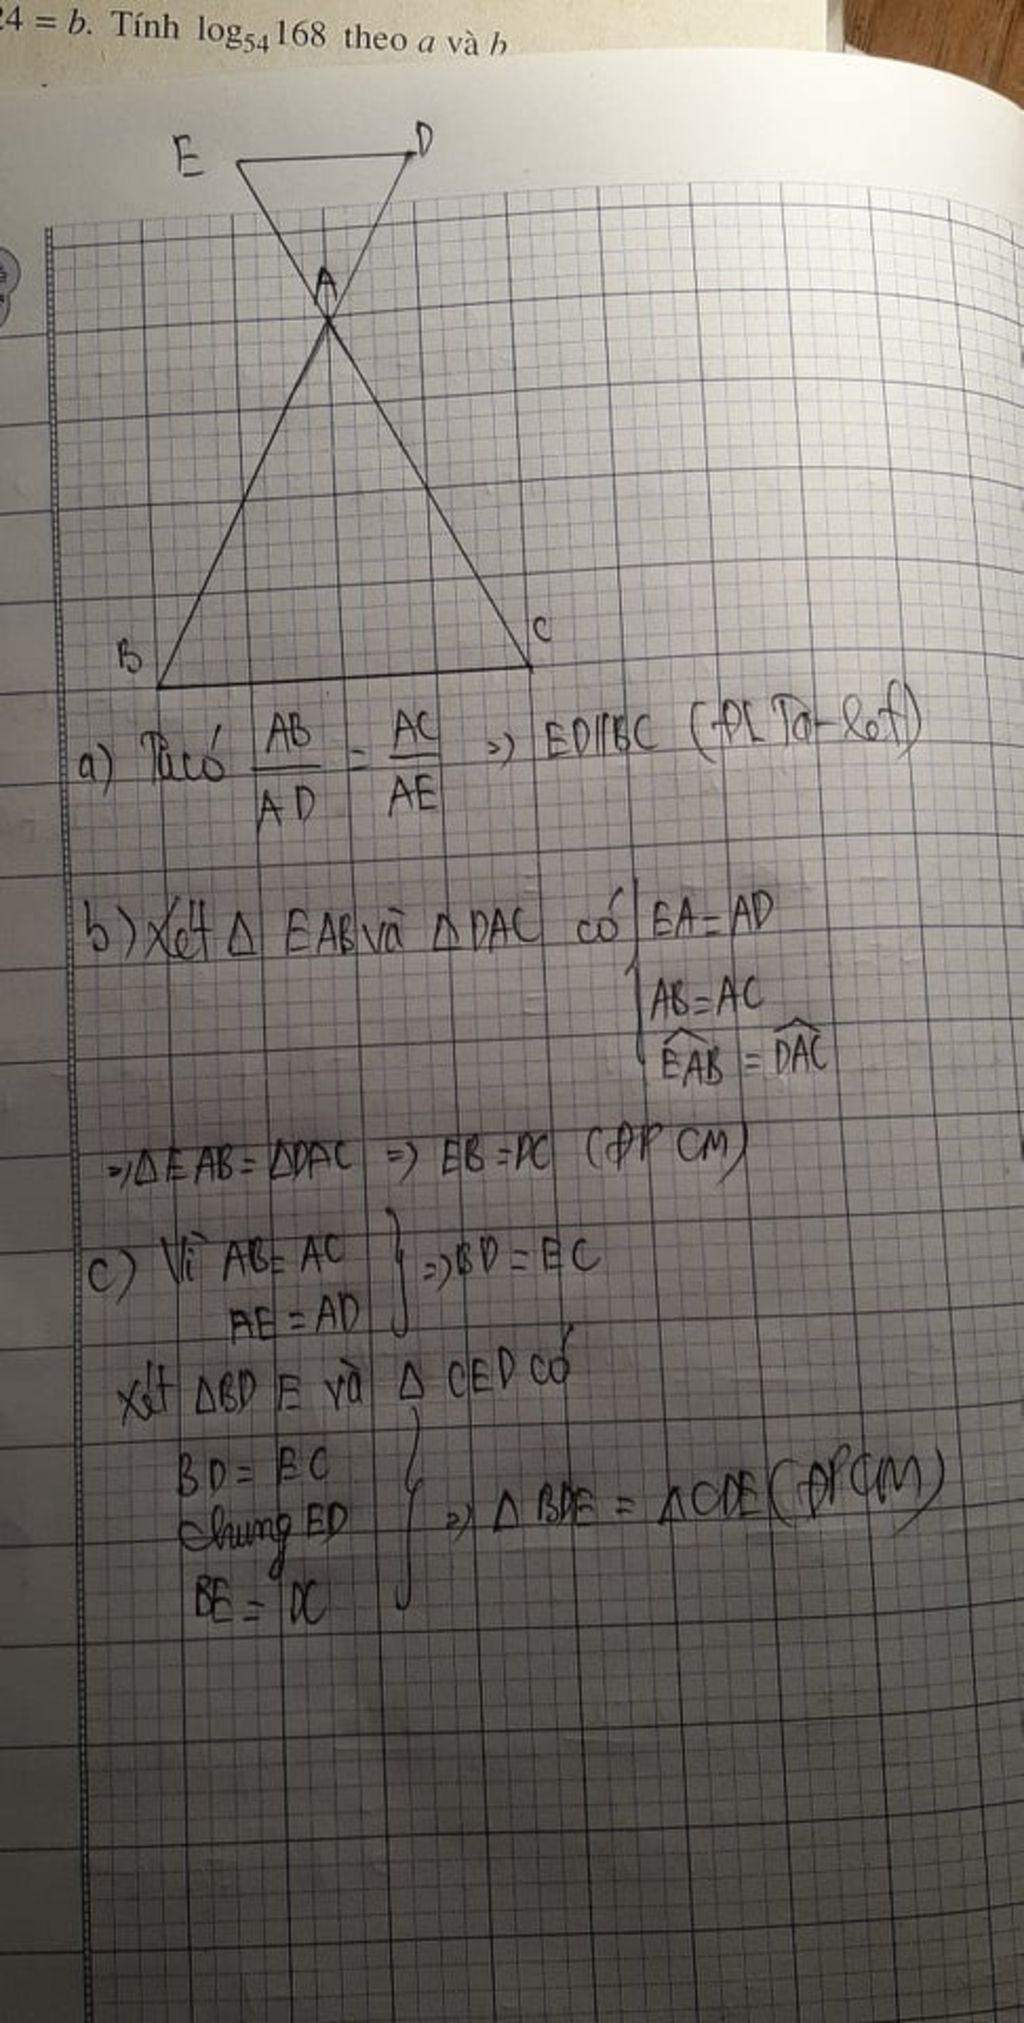 24 = b. Tính log₅₄168 theo a và b
E
D
A
B
C
a) Ta có AB/AD = AC/AE => ED//BC (ĐL Ta-let)
b) Xét Δ EAB và Δ DAC có EA = AD
AB = AC
\widehat{EAB} = \widehat{DAC}
=> ΔEAB = ΔDAC => EB = DC (ĐPCM)
c) Vì AB = AC
AE = AD } => BD = EC
Xét ΔBDE và Δ CED có
BD = EC
chung ED } => Δ BDE = ΔCDE (ĐPCM)
BE = DC